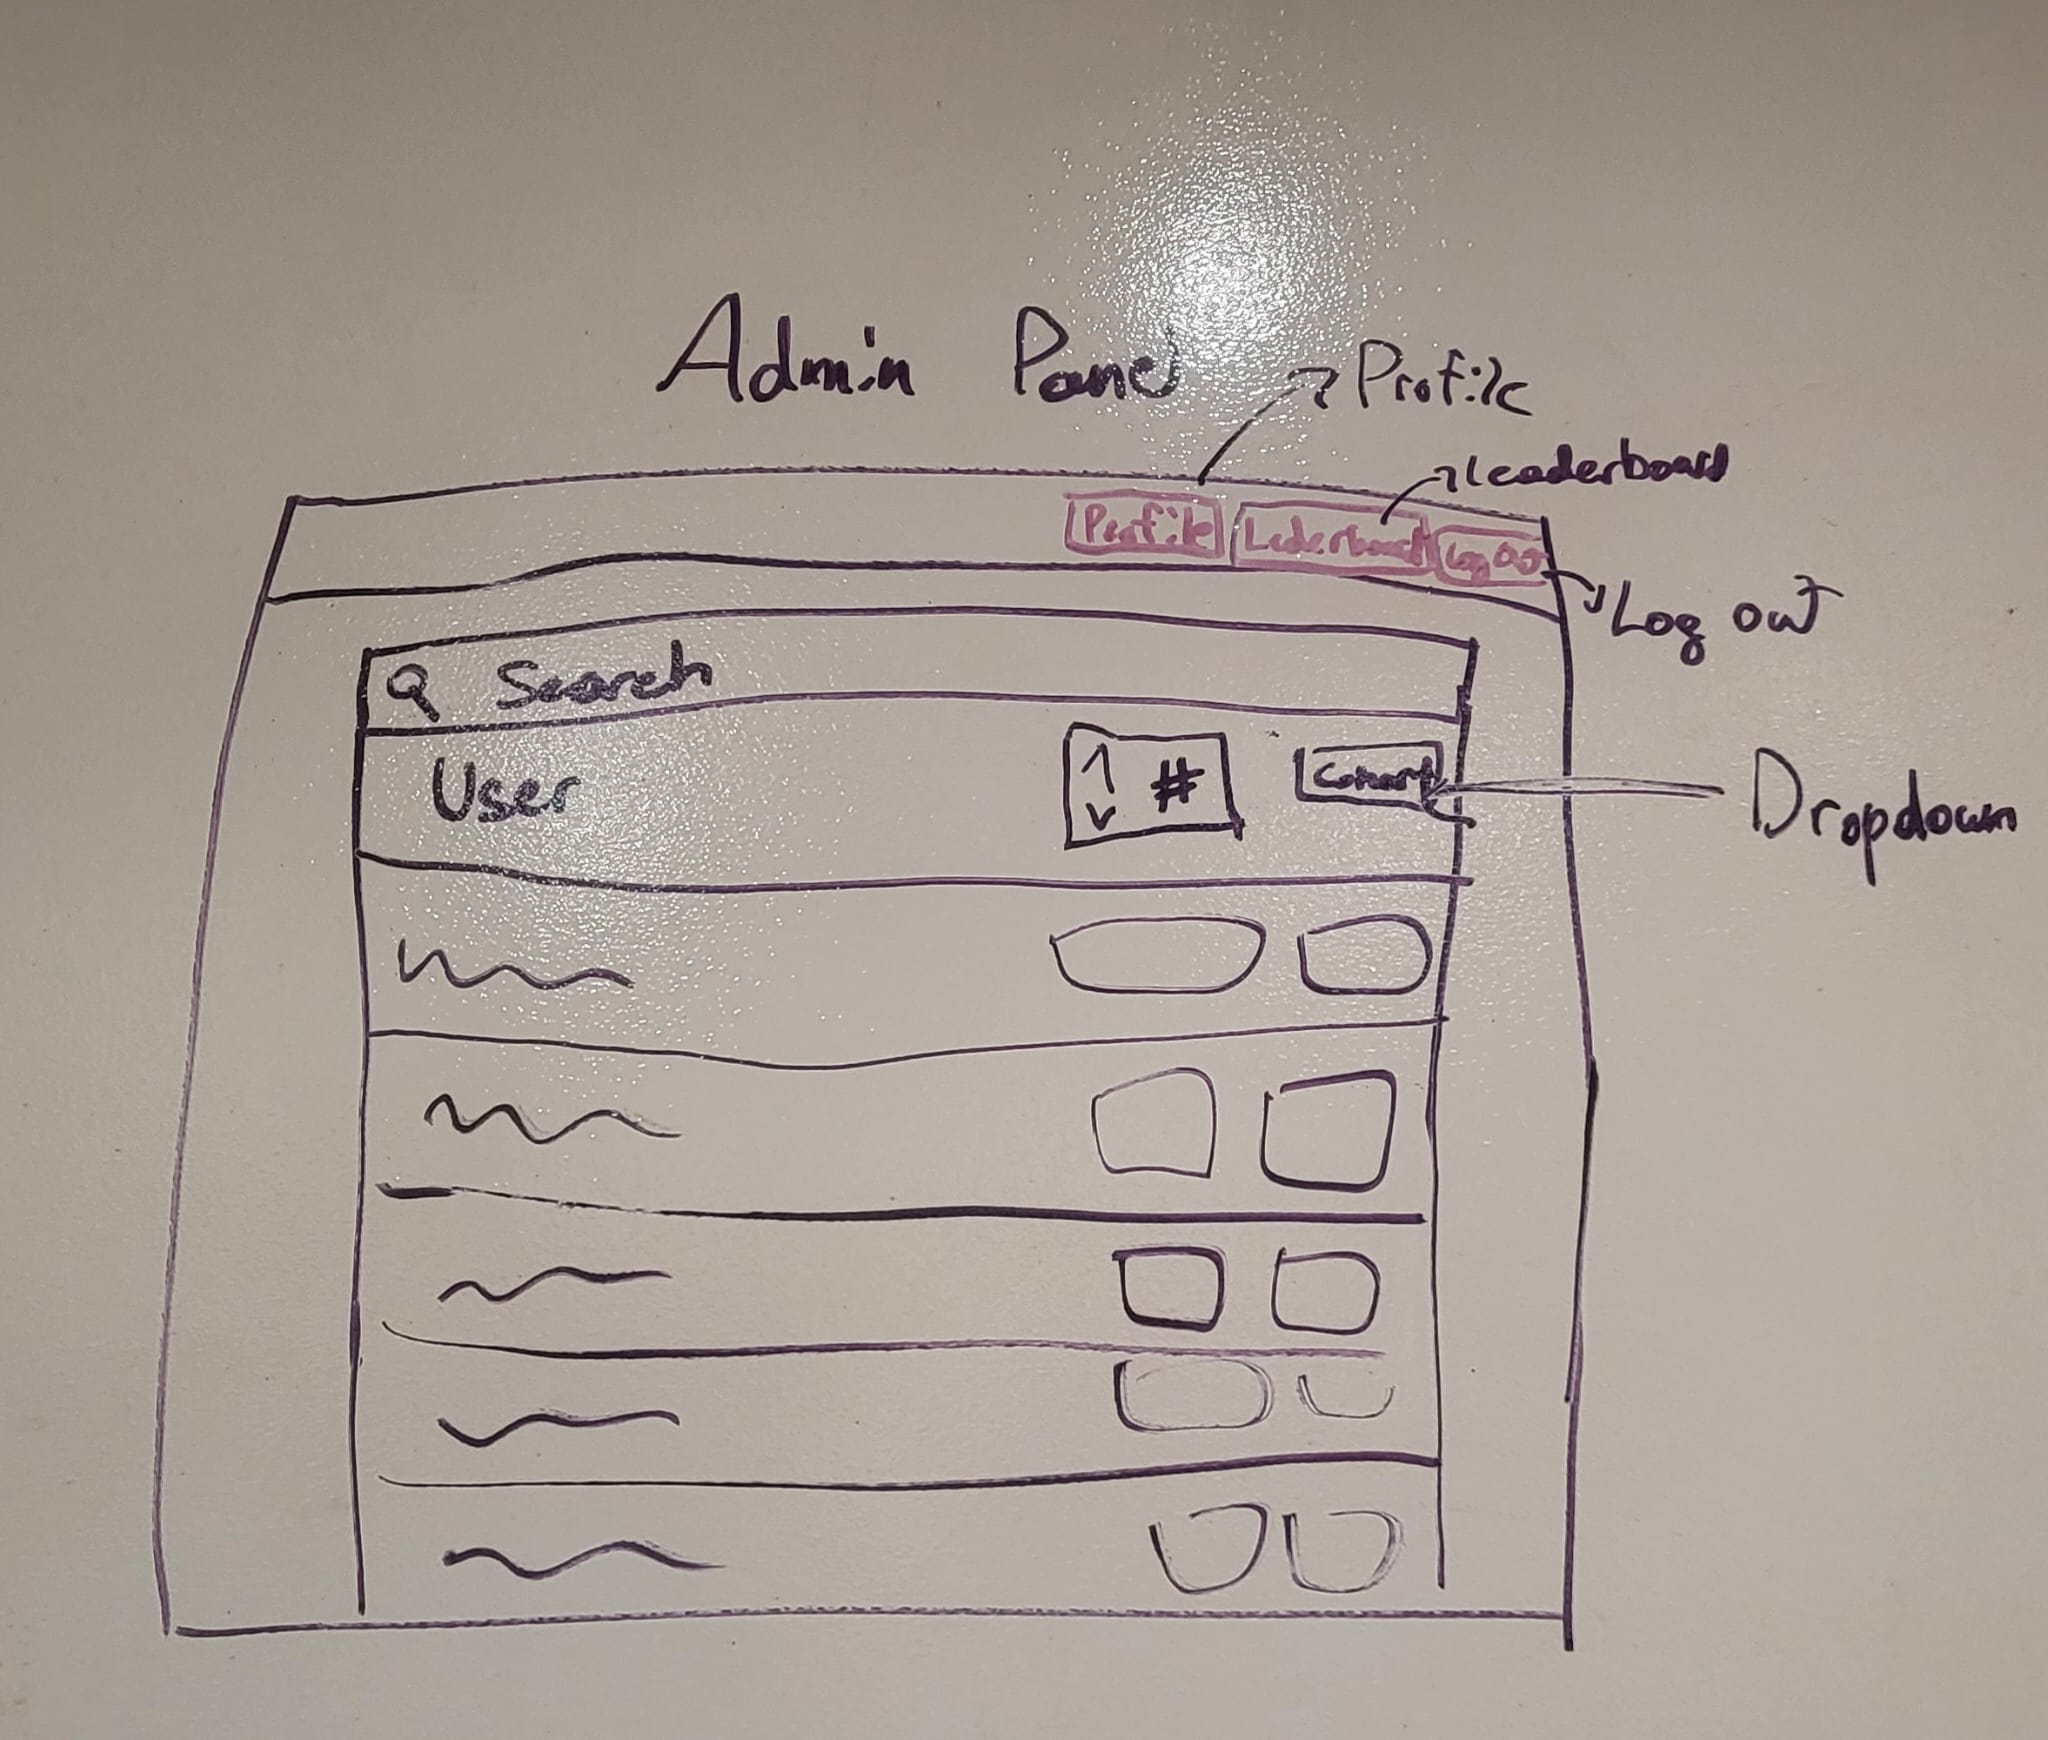 Admin Panel
Profile
Leaderboard
Profile
Leaderboard
Log Out
Log out
Search
User
#
Dropdown